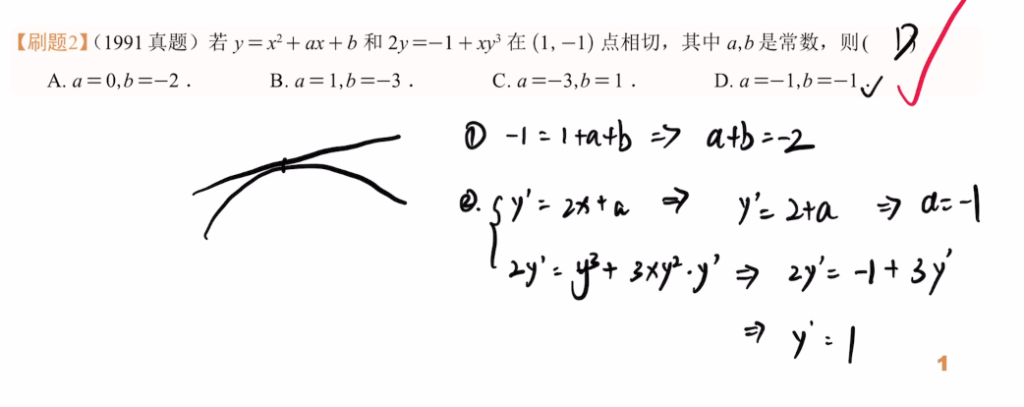 【刷题2】（1991 真题）若 y=x²+ax+b 和 2y=-1+xy³ 在 (1,-1) 点相切，其中 a,b 是常数，则( D
A. a=0,b=-2. B. a=1,b=-3. C. a=-3,b=1. D. a=-1,b=-1.
① -1=1+a+b ⇒ a+b=-2
②. { y'=2x+a ⇒ y'=2+a ⇒ a=-1
2y'=y³+3xy²·y' ⇒ 2y'=-1+3y'
⇒ y'=1
1